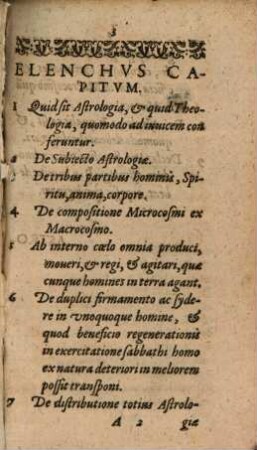 3
ELENCHVS CA-
PITVM.
1 Quid sit Astrologia, & quid Theo-
logia, quomodo ad invicem con
feruntur.
2 De Subiecto Astrologiæ.
3 De tribus partibus hominis, Spi-
ritu, anima, corpore.
4 De compositione Microcosmi ex
Macrocosmo.
5 Ab interno cœlo omnia produci,
moueri, & regi, & agitari, quæ
cunque homines in terra agant.
6 De duplici firmamento ac syde-
re in vnoquoque homine, &
quod beneficio regenerationis
in exercitatione sabbathi homo
ex natura deteriori in meliorem
possit transponi.
7 De distributione totius Astrolo-
A 2 giæ